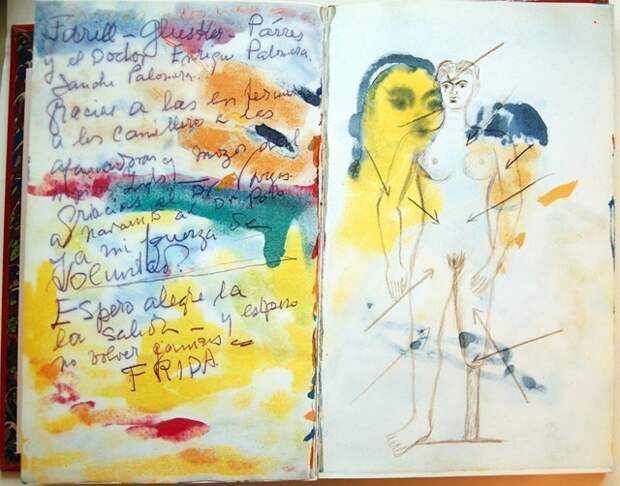 Farill – Glusker – Párres
y el Doctor Enrique Palomera
Sanchez Palomera.
Gracias a las enfermeras
a los camilleros a las
afanadoras y mozos del
Gracias al Dr.
a Navarro al Dr. Polo
y a mi fuerza de
voluntad.
Espero alegre la
la salida – y espero
no volver jamás –
FRIDA